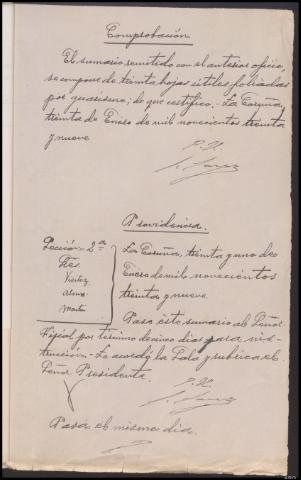 Comprobación.
El sumario remitido con el anterior oficio,
se compone de treinta hojas útiles foliadas
por guarismo; de que certifico.- La Coruña,
treinta de Enero de mil novecientos treinta
y nueve
P.H.
Providencia.
Sección - 2ª
Sres.
La Coruña, treinta y uno de
Enero de mil novecientos
treinta y nueve.
Pasa éste sumario al Señor
Fiscal por término de cinco días para ins-
trucción.- Lo acordó la Sala y rubrica el
Señor Presidente.
P.H.
Pasa el mismo dia.